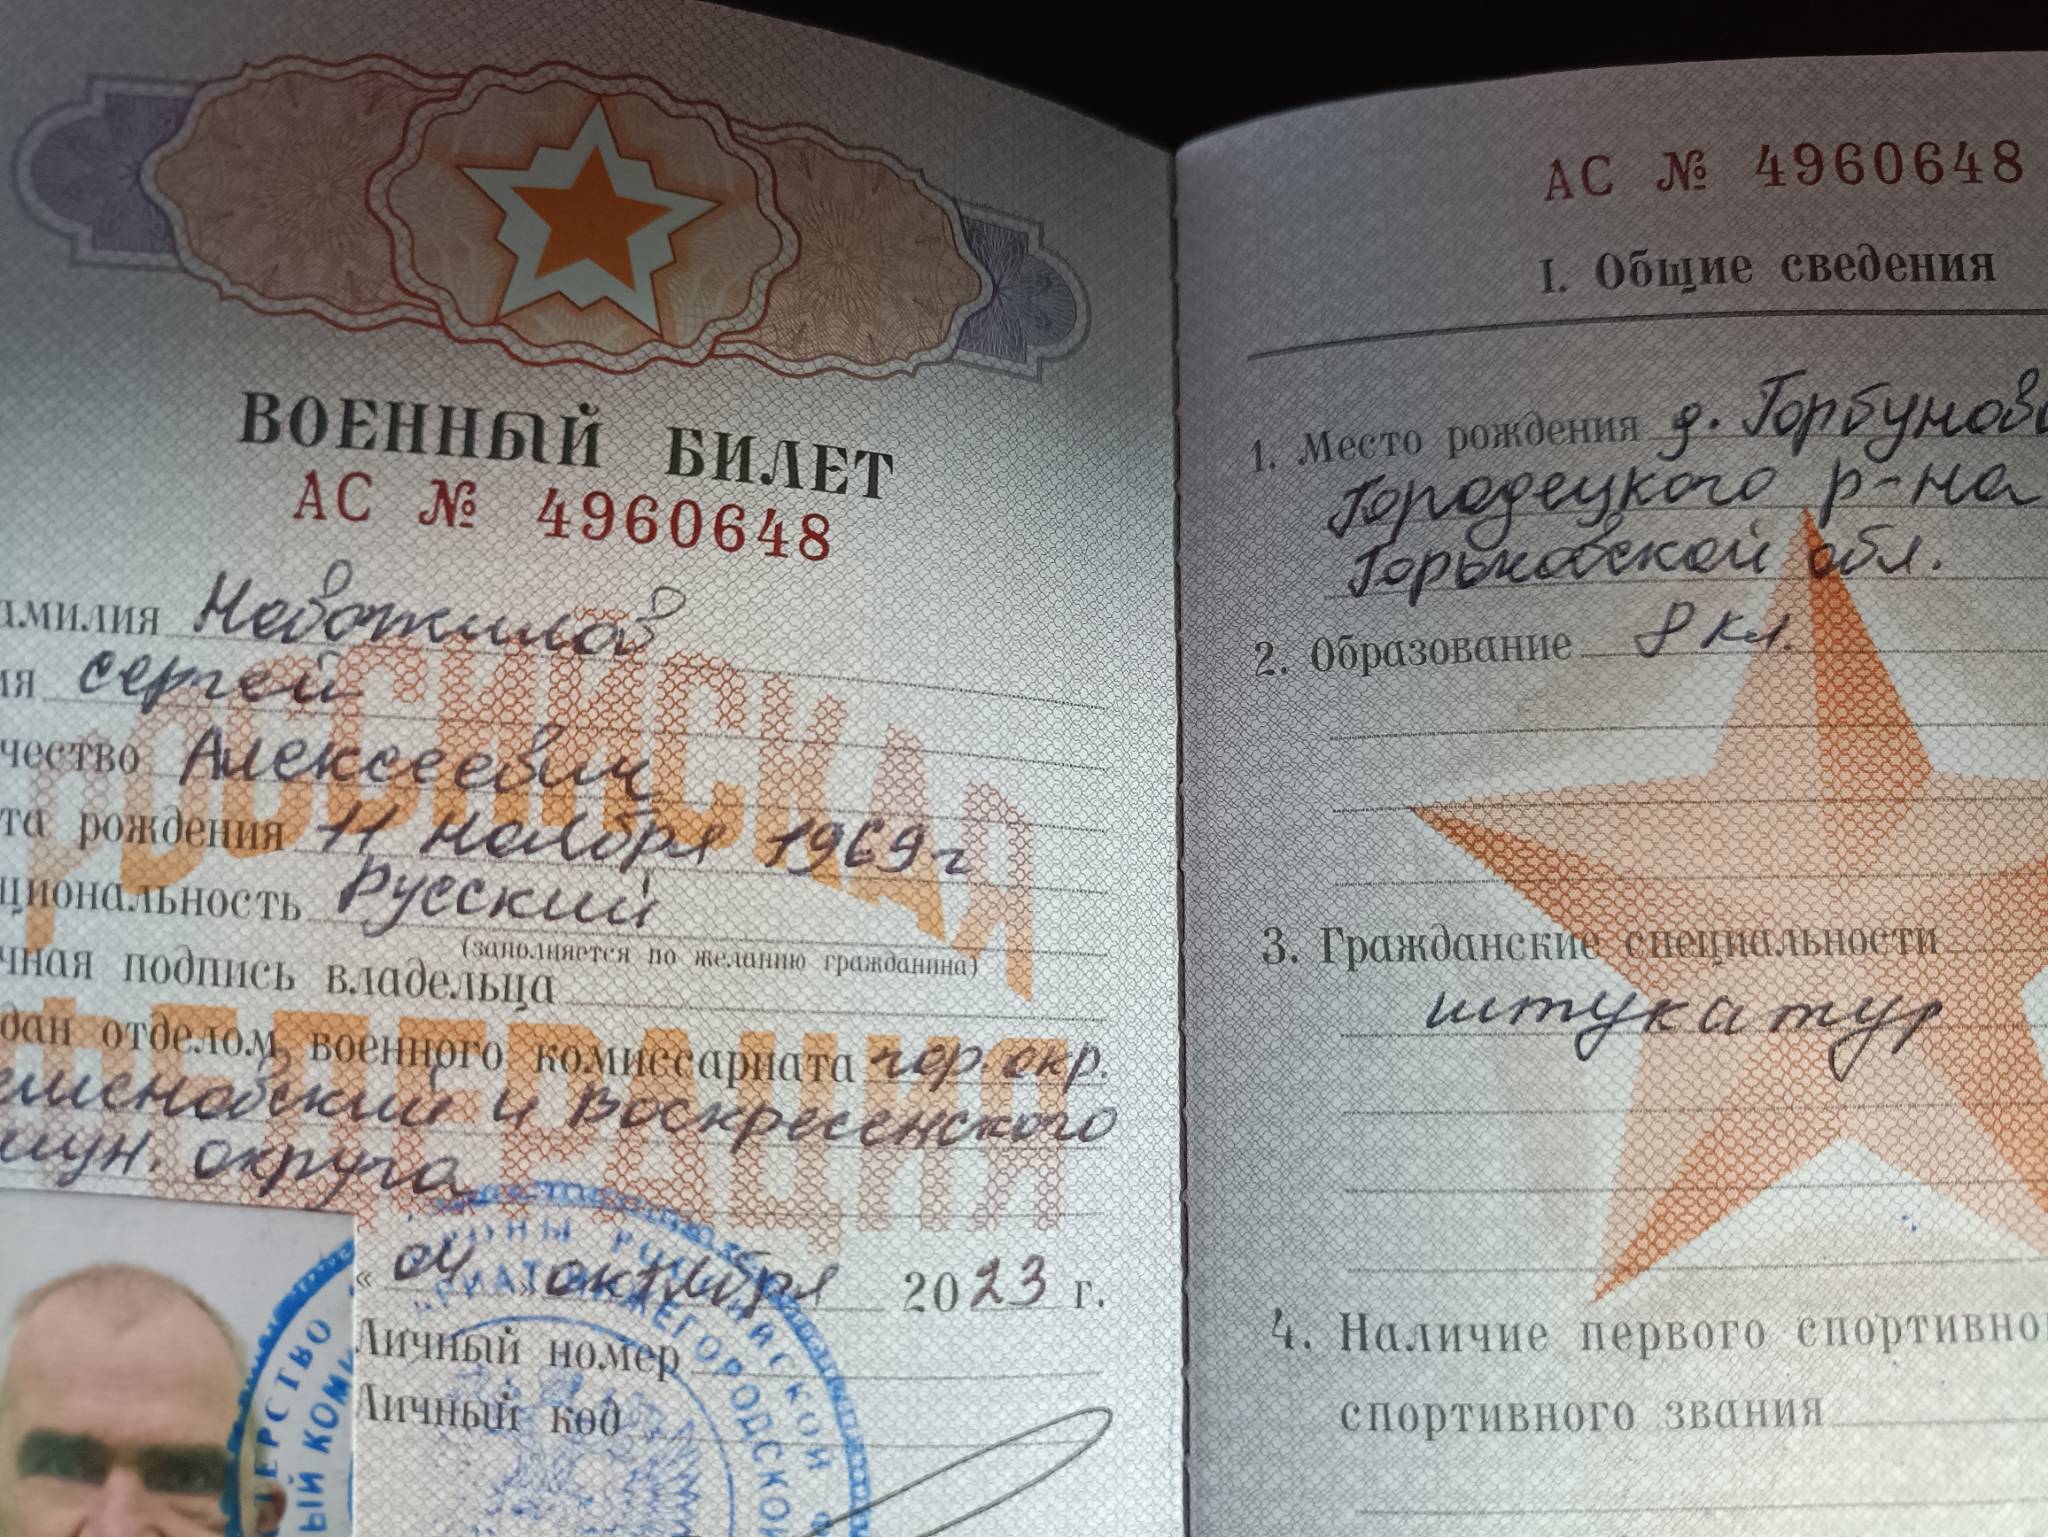 ВОЕННЫЙ БИЛЕТ
АС № 4960648
амилия Новожилов
ия Сергей
чество Алексеевич
та рождения 11 ноября 1969 г
циональность Русский
(заполняется по желанию гражданина)
чная подпись владельца
дан отделом военного комиссариата гор. окр.
и Воскресенского
мун. округа
РОССИЙСКАЯ
ФЕДЕРАЦИЯ
« 04 » октября 2023 г.
Личный номер
Личный код
АС № 4960648
I. Общие сведения
1. Место рождения д. Горбунов
Городецкого р-на
Горьковской обл.
2. Образование 8 кл.
3. Гражданские специальности
штукатур
4. Наличие первого спортивно
спортивного звания